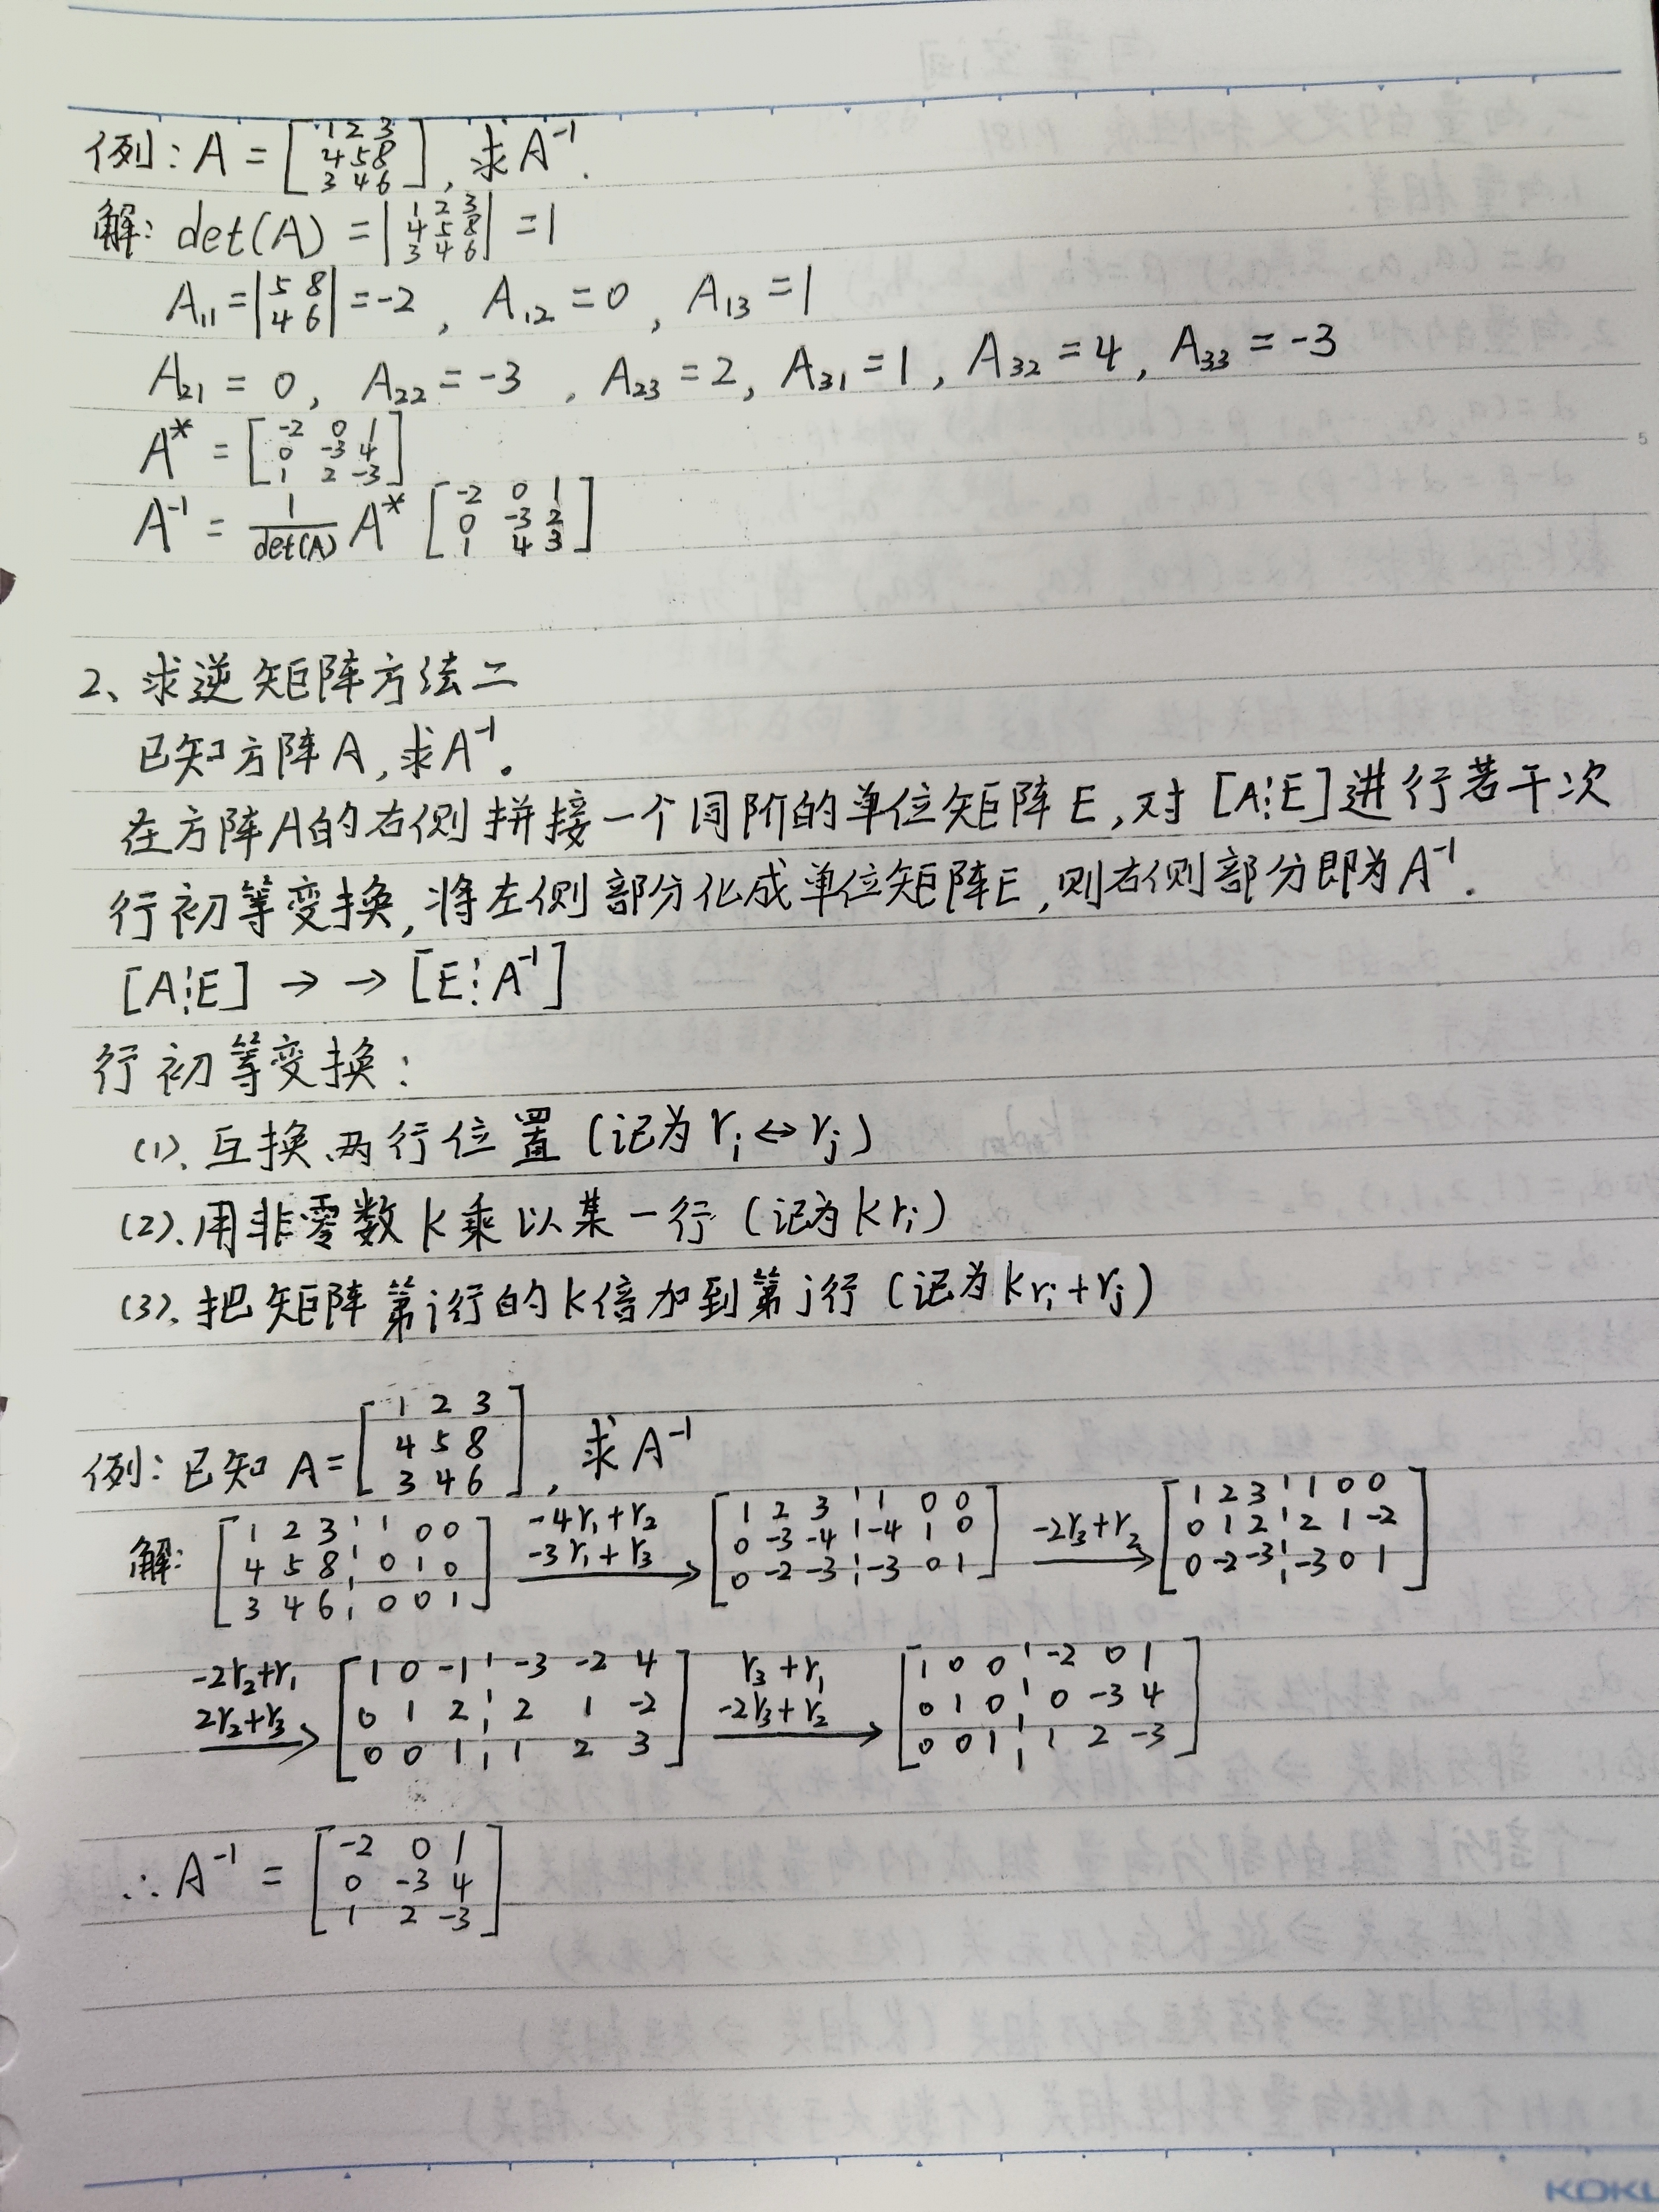 例: A = [1 2 3; 4 5 8; 3 4 6], 求 A⁻¹.
解: det(A) = |1 2 3; 4 5 8; 3 4 6| = 1
A₁₁ = |5 8; 4 6| = -2, A₁₂ = 0, A₁₃ = 1
A₂₁ = 0, A₂₂ = -3, A₂₃ = 2, A₃₁ = 1, A₃₂ = 4, A₃₃ = -3
A* = [-2 0 1; 0 -3 4; 1 2 -3]
A⁻¹ = 1/det(A) A* [-2 0 1; 0 -3 2; 1 4 3]
5
2、求逆矩阵方法二
已知方阵A,求A⁻¹。
在方阵A的右侧拼接一个同阶的单位矩阵E,对[A⋮E]进行若干次
行初等变换,将左侧部分化成单位矩阵E,则右侧部分即为A⁻¹.
[A⋮E] → → [E⋮A⁻¹]
行初等变换:
(1). 互换两行位置 (记为 rᵢ↔rⱼ)
(2). 用非零数k乘以某一行 (记为krᵢ)
(3). 把矩阵第i行的k倍加到第j行 (记为krᵢ+rⱼ)
例: 已知 A = [1 2 3; 4 5 8; 3 4 6], 求A⁻¹
解: [1 2 3 ¦ 1 0 0; 4 5 8 ¦ 0 1 0; 3 4 6 ¦ 0 0 1] -4r₁+r₂ -3r₁+r₃ → [1 2 3 ¦ 1 0 0; 0 -3 -4 ¦ -4 1 0; 0 -2 -3 ¦ -3 0 1] -2r₃+r₂ → [1 2 3 ¦ 1 0 0; 0 1 2 ¦ 2 1 -2; 0 -2 -3 ¦ -3 0 1]
-2r₂+r₁ 2r₂+r₃ → [1 0 -1 ¦ -3 -2 4; 0 1 2 ¦ 2 1 -2; 0 0 1 ¦ 1 2 3] r₃+r₁ -2r₃+r₂ → [1 0 0 ¦ -2 0 1; 0 1 0 ¦ 0 -3 4; 0 0 1 ¦ 1 2 -3]
∴ A⁻¹ = [-2 0 1; 0 -3 4; 1 2 -3]